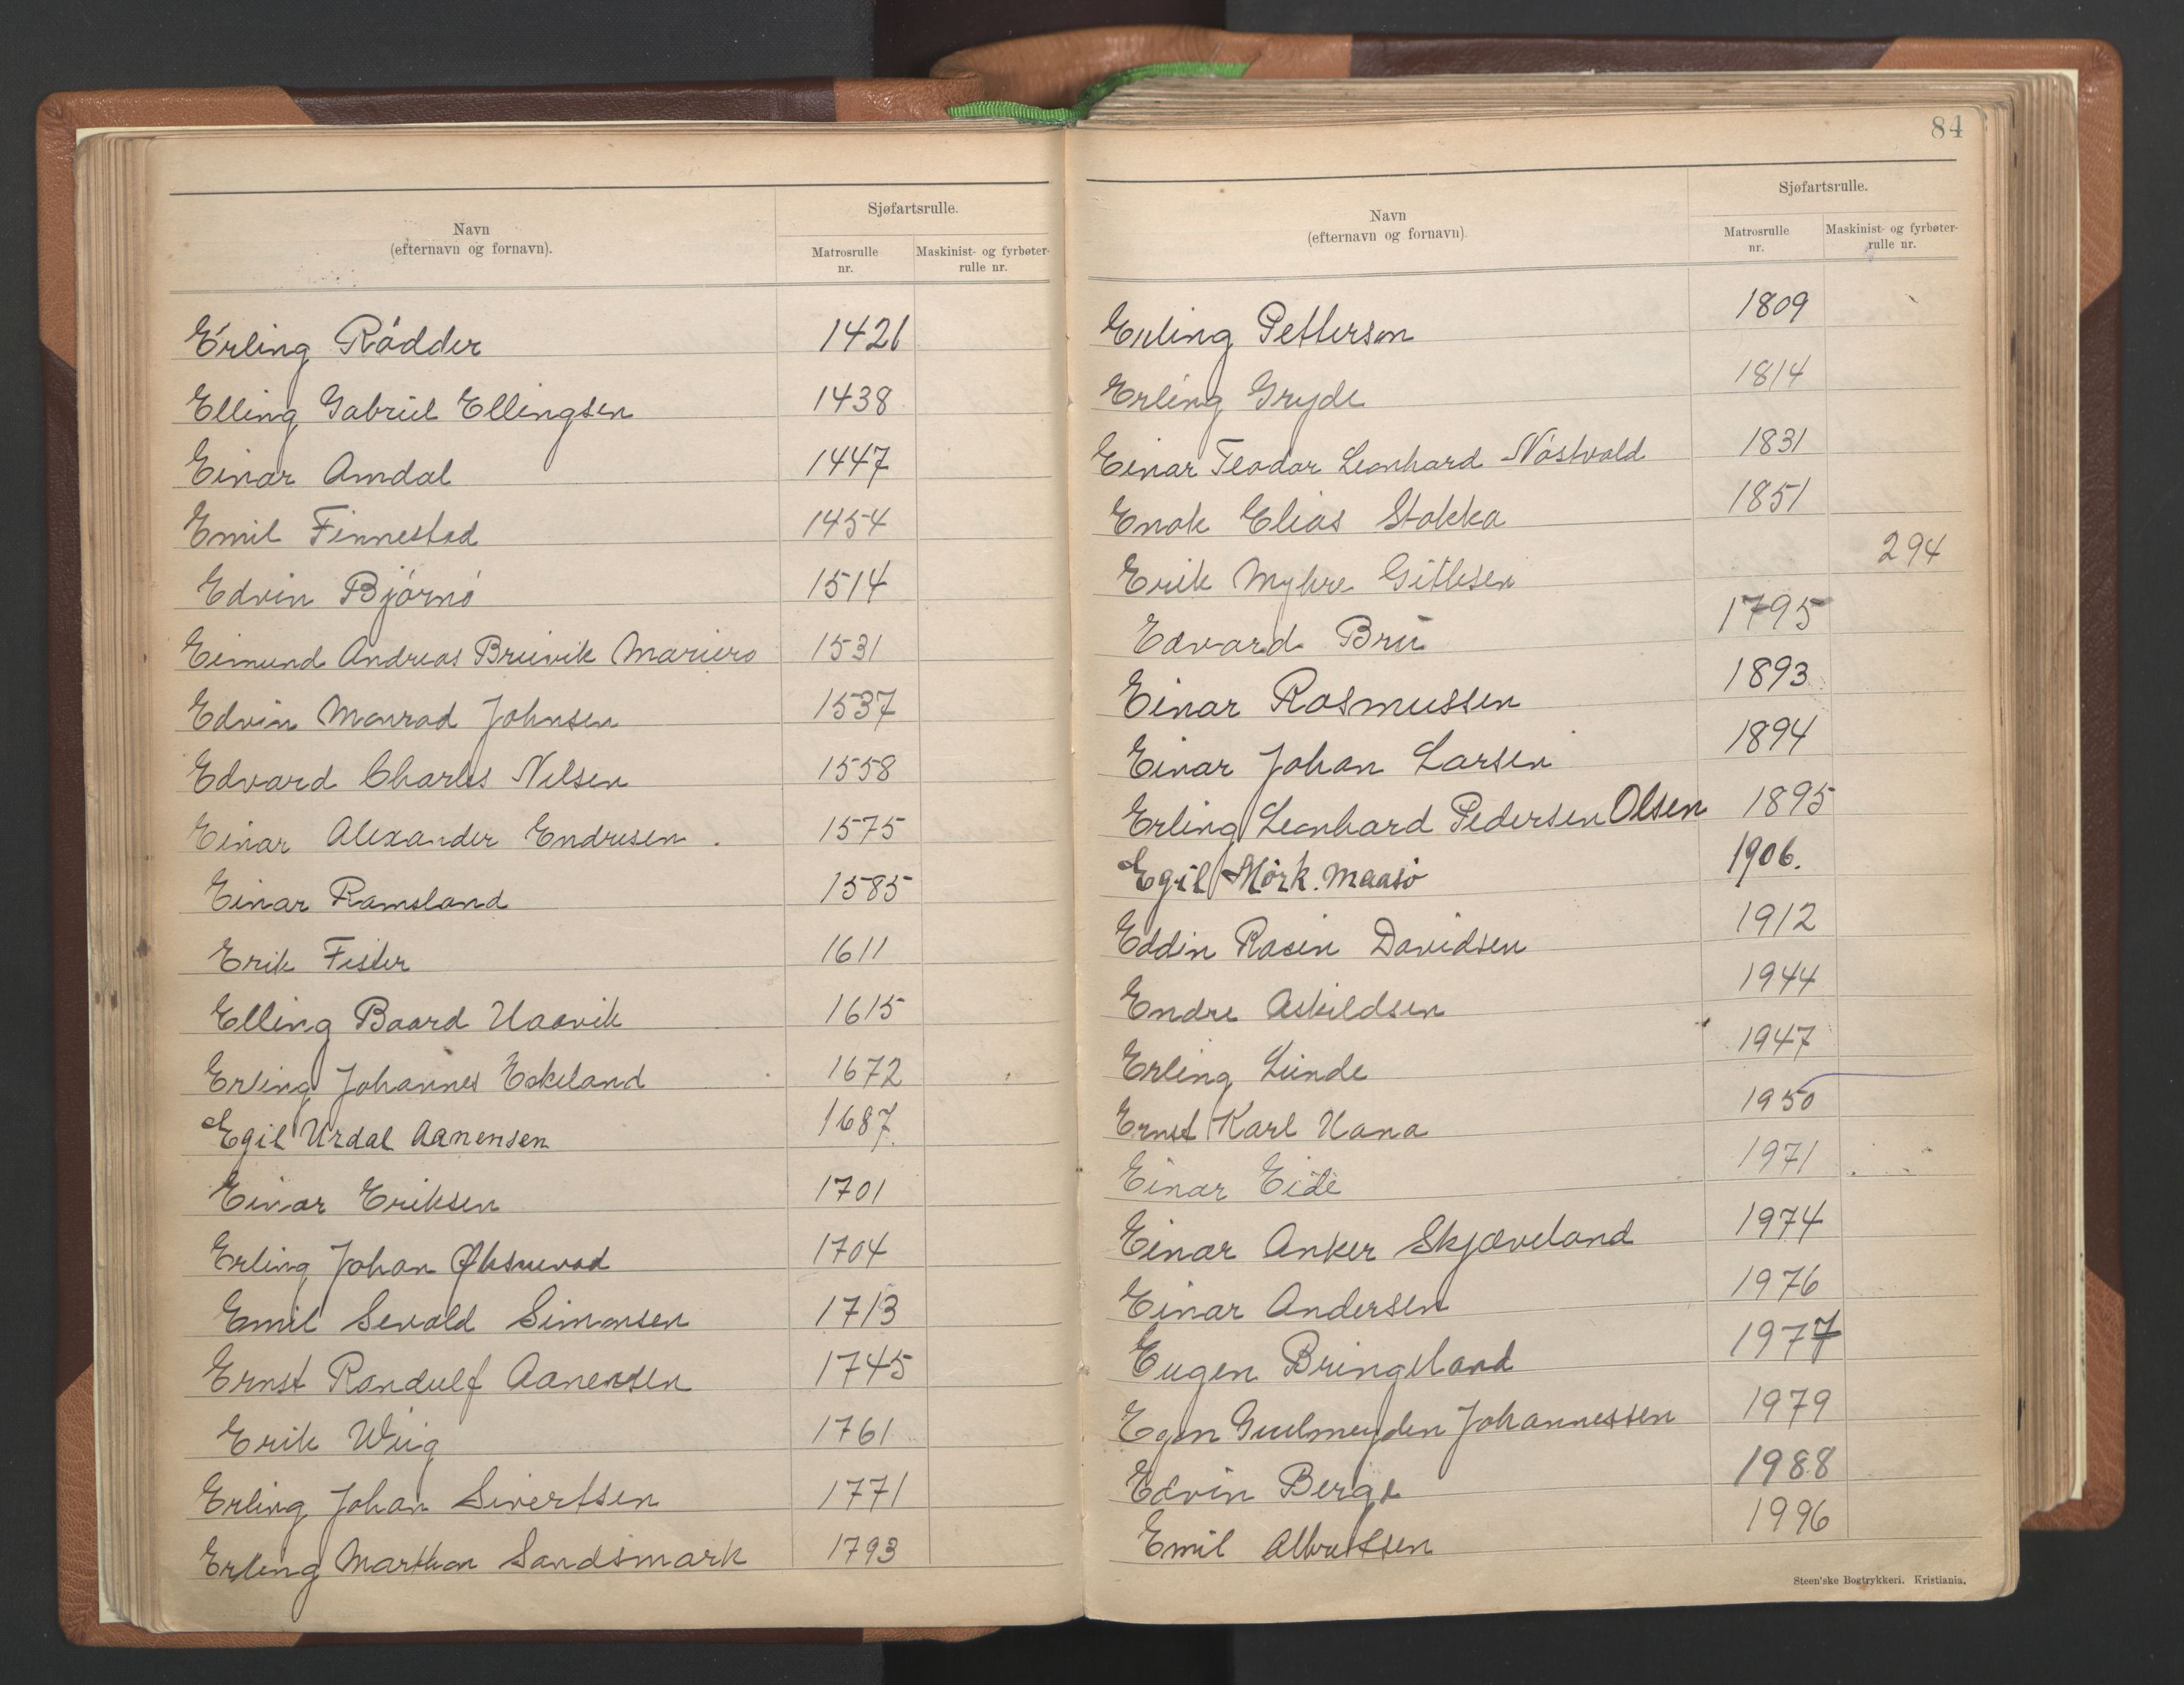 Navn
(efternavn og fornavn).
Sjøfartsrulle.
Matrosrulle nr.
Maskinist- og fyrbøter-rulle nr.
Erling Rödder 1421
Elling Gabriel Ellingsen 1438
Einar Amdal 1447
Emil Finnestad 1454
Edvin Björnö 1514
Eimund Andreas Bruvik Mariero 1531
Edvin Monrad Johnsen 1537
Edvard Charles Nilsen 1558
Einar Alexander Endresen . 1575
Einar Ramsland 1585
Erik Fister 1611
Elling Baard Haavik 1615
Erling Johannes Eskeland 1672
Egil Urdal Aanensen 1687.
Einar Eriksen 1701
Erling Johan Øksnevad 1704
Emil Sevald Simonsen 1713
Ernst Randulf Aanensen 1745
Erik Wiig 1761
Erling Johan Sivertsen 1771
Erling Marthon Sandsmark 1793
84
Navn
(efternavn og fornavn).
Sjøfartsrulle.
Matrosrulle nr.
Maskinist- og fyrbøter-rulle nr.
Erling Petterson 1809
Erling Gryde 1814
Einar Teodor Leonhard Nöstvold 1831
Enok Elias Stokka 1851
Erik Myhre Gitlesen 294
Edvard Bru 1795
Einar Rasmussen 1893
Einar Johan Larsen 1894
Erling Leonhard Pedersen Olsen 1895
Egil Mörk. Maasö 1906.
Eddin Rasin Davidsen 1912
Endre Askildsen 1944
Erling Lunde 1947
Ernst Karl Hana 1950
Einar Eide 1971
Einar Anker Skjæveland 1974
Einar Andersen 1976
Eugen Bringeland 1977
Egon Gulmeyden Johannessen 1979
Edvin Berge 1988
Emil Albretsen 1996
Steen'ske Bogtrykkeri. Kristiania.